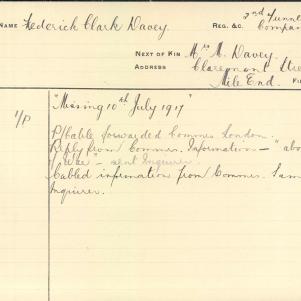 NAME Federick Clark Davey. REG. &C. 2nd Tunn
Compan
NEXT OF KIN Mrs A. Davey.
ADDRESS Claremont Stre
Mile End. FI
1/P "Missing 10th July 1917"
P/Cable forwarded Commes London.
Reply from Commes. Information - "abo
P/War" - sent Inquirer.
Cabled information from Commes. Sam
Inquirer.